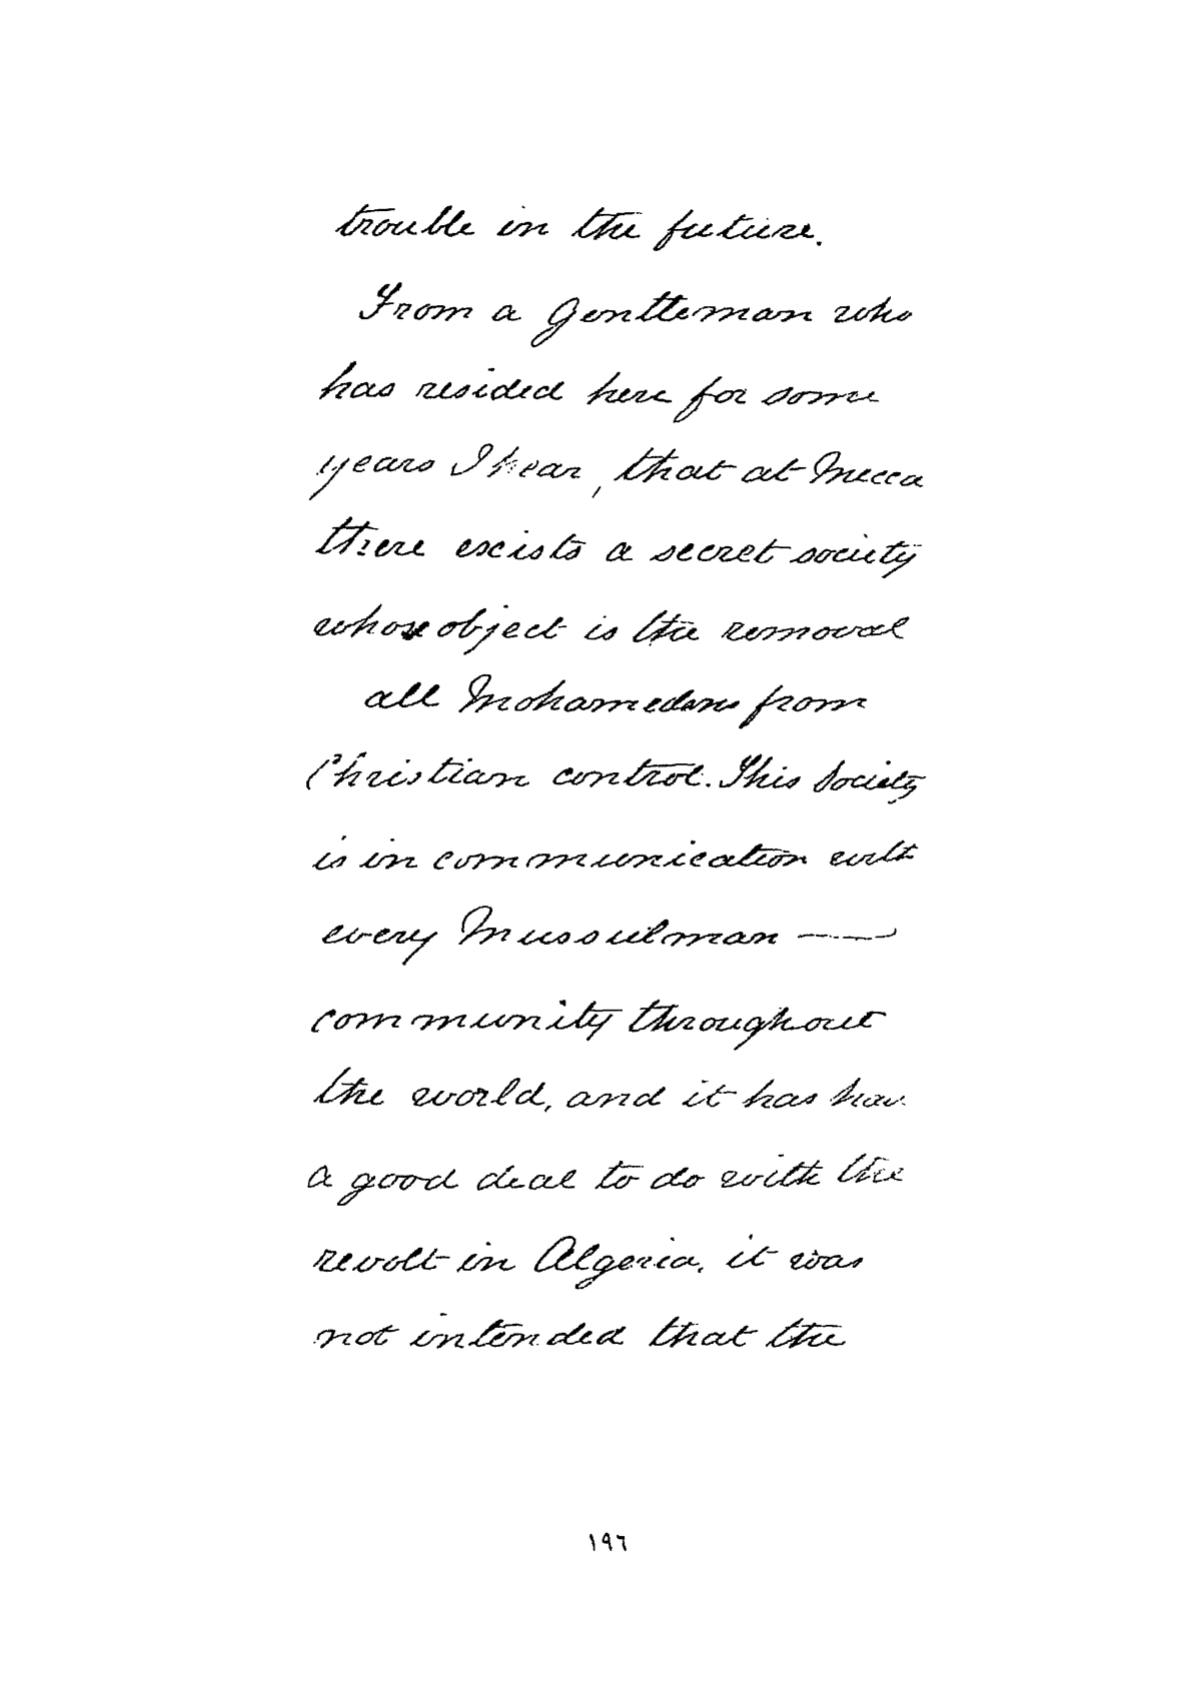 trouble in the future.
From a Gentleman who
has resided here for some
years I hear, that at Mecca
there exists a secret society
whose object is the removal
all Mohamedans from
Christian control. This Society
is in communication with
every Mussulman —
community throughout
the world, and it has had
a good deal to do with the
revolt in Algeria, it was
not intended that the
١٩٦